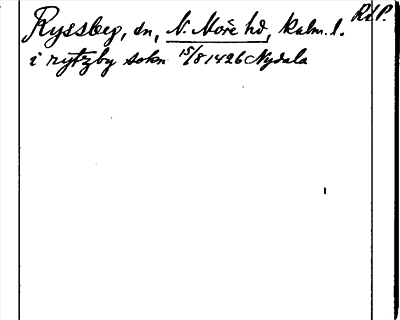 RäP.
Ryssbey, sn, N. Möre hd, Kalm. l.
i rytzby sokn 15/8 1426 Nydala